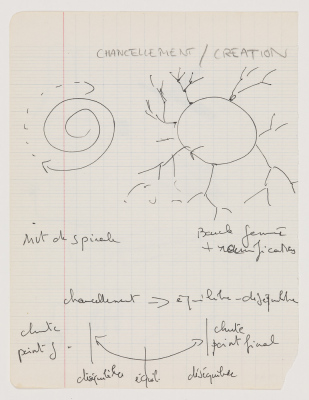 CHANCELLEMENT / CREATION
Mvt de spirale
Boucle fermée
+ ramifications
chancellement => équilibre-déséquilibre
chute
point f
chute
point final
déséquilibre équil. déséquilibre